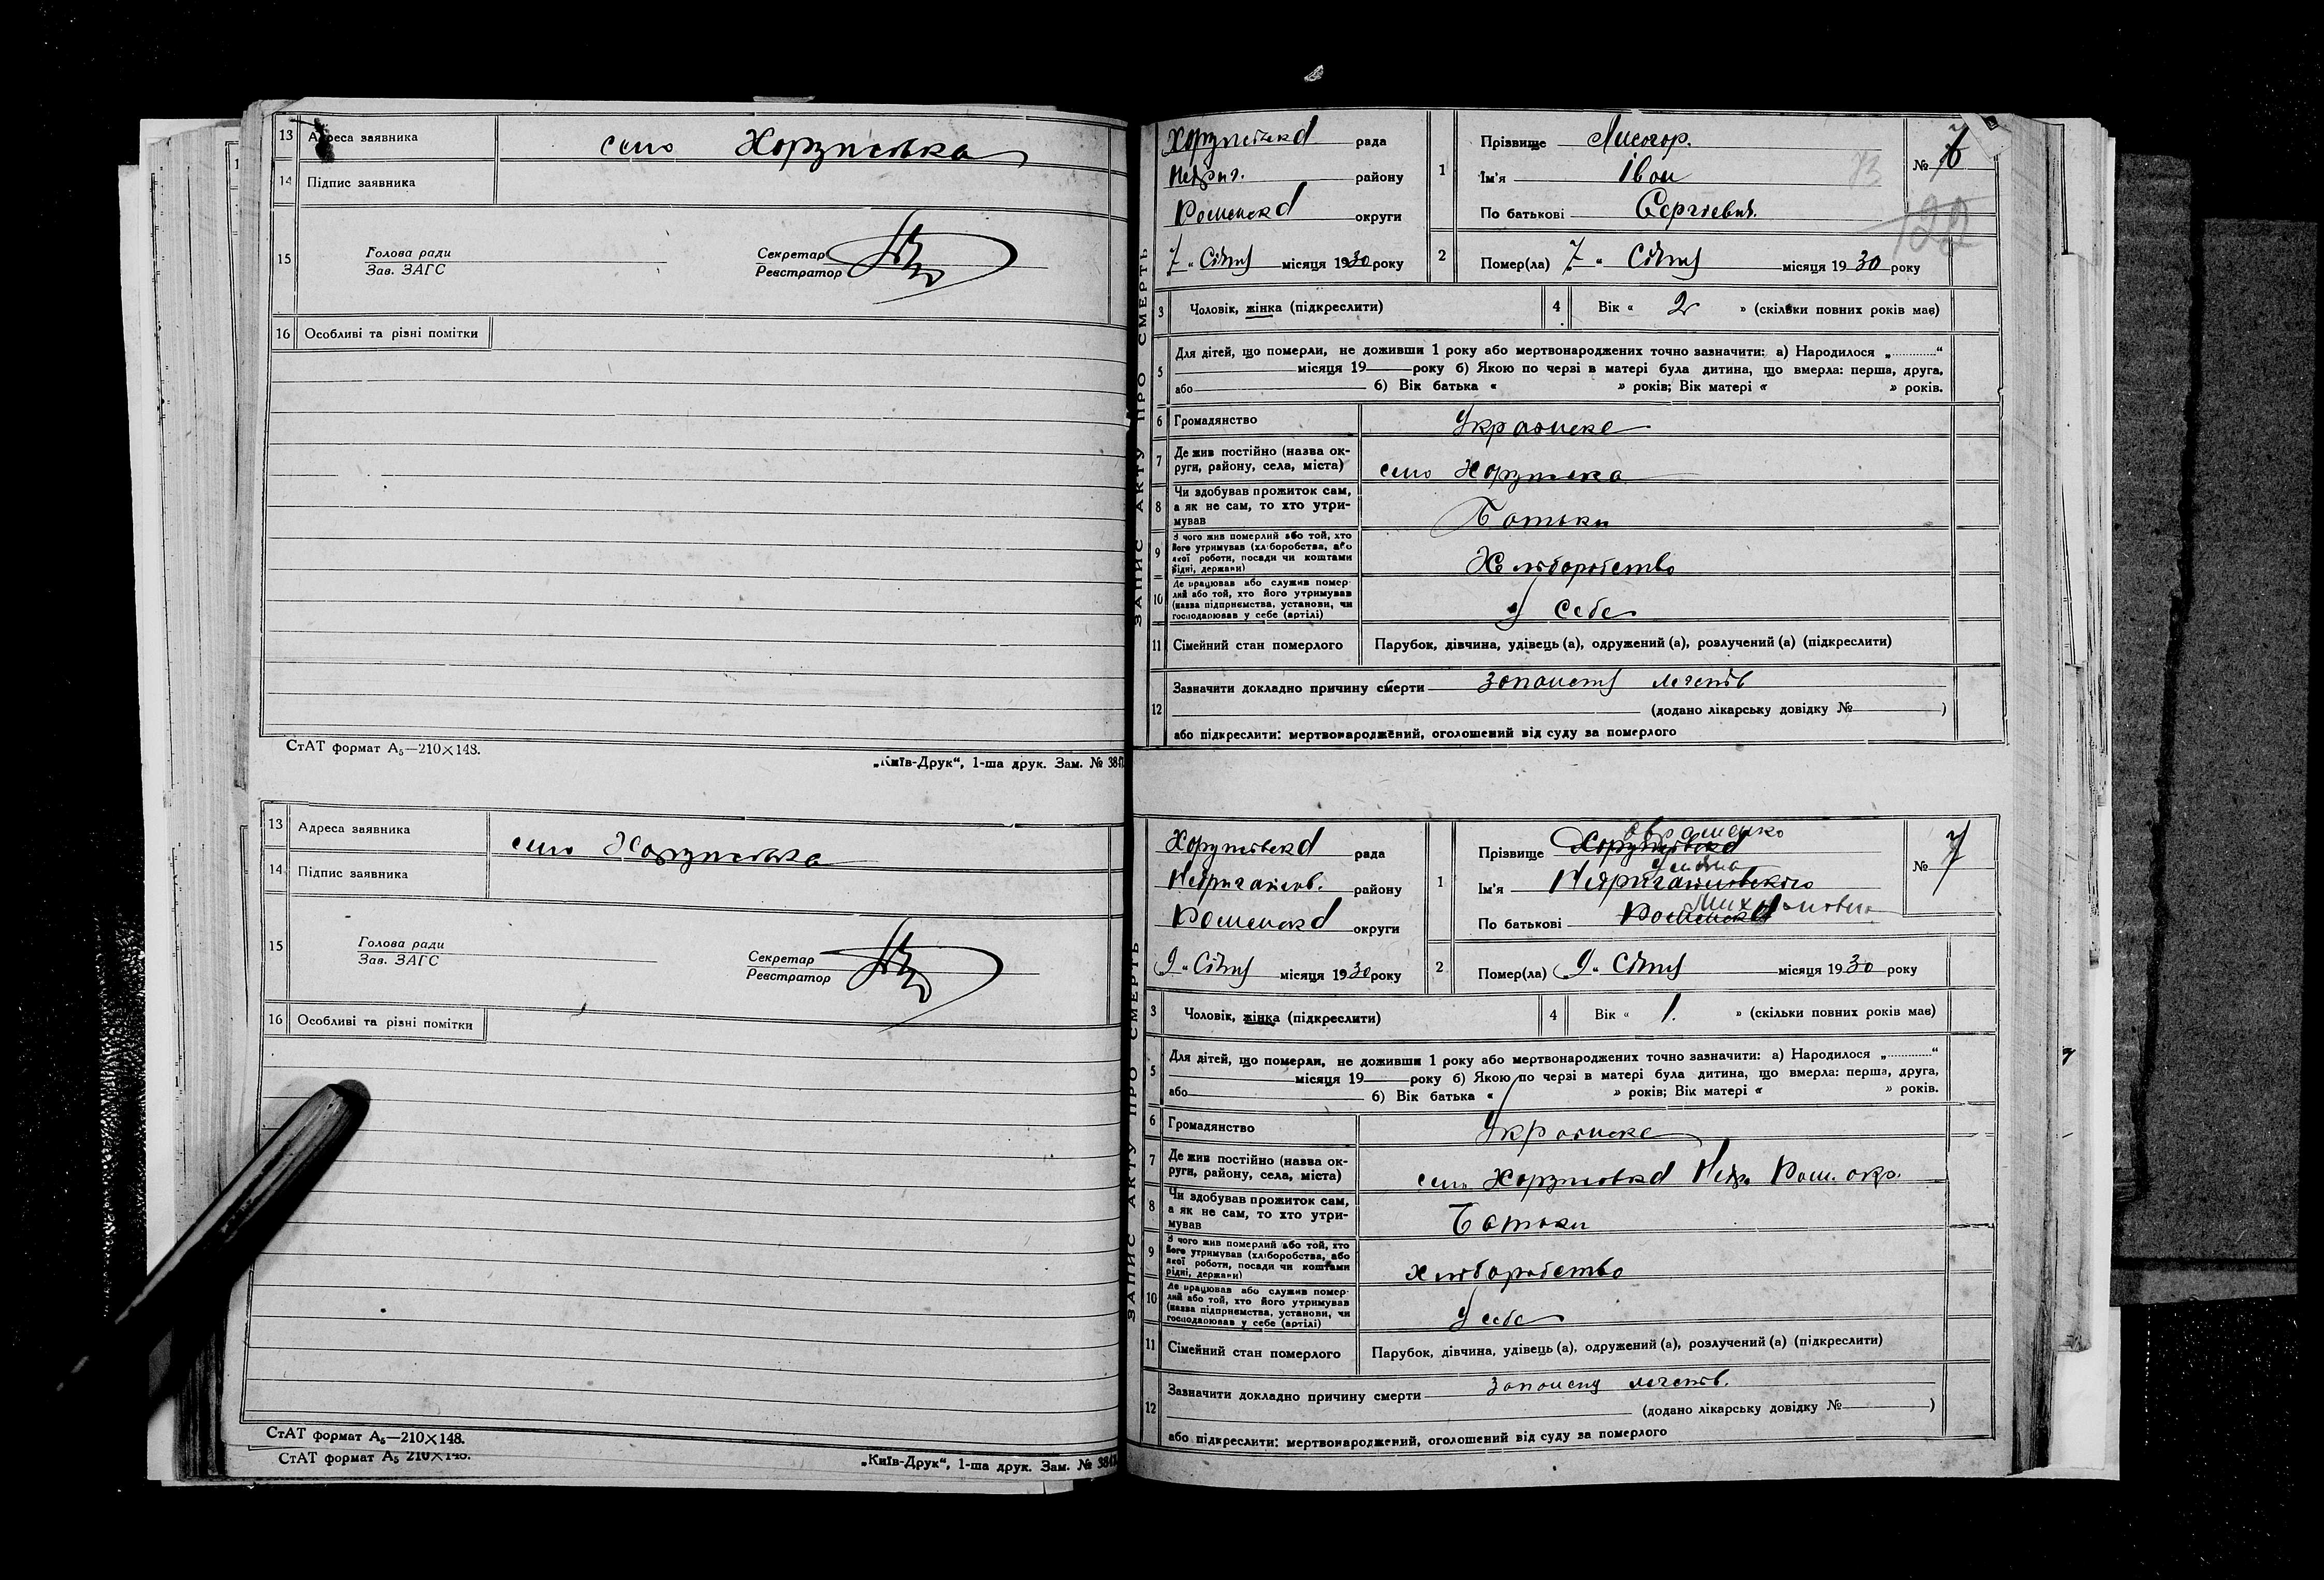 13 Адреса заявника село Хоружівка
14 Підпис заявника
15 Голова ради
Зав. ЗАГС
Секретар
Реєстратор
16 Особливі та різні помітки
СтАТ формат А₅—210×148.
„Київ-Друк“, 1-ша друк. Зам. №
13 Адреса заявника село Хоружівка
14 Підпис заявника
15 Голова ради
Зав. ЗАГС
Секретар
Реєстратор
16 Особливі та різні помітки
СтАТ формат А₅—210×148.
СтАТ формат А₅ 210×148.
„Київ-Друк“, 1-ша друк. Зам. №
ЗАПИС АКТУ ПРО СМЕРТЬ
Хоружівська рада
Недриг. району
Роменська округи
7 „ Січня місяця 1930 року
1 Прізвище Лисогор.
Ім'я Іван
По батькові Сергієвич.
№
122
2 Помер(ла) 7 „ Січня місяця 1930 року
3 Чоловік, жінка (підкреслити)
4 Вік « 2 » (скільки повних років має)
5 Для дітей, що померли, не доживши 1 року або мертвонароджених точно зазначити: а) Народилося „ “
місяця 19 року б) Якою по черзі в матері була дитина, що вмерла: перша, друга,
або б) Вік батька « » років; Вік матері « » років.
6 Громадянство Українське
7 Де жив постійно (назва ок-
руги, району, села, міста) село Хоружівка
8 Чи здобував прожиток сам,
а як не сам, то хто утри-
мував Батьки
9 З чого жив померлий або той, хто
його утримував (хліборобства, або
якої роботи, посади чи коштами
рідні, держави) Хліборобство
10 Де працював або служив помер-
лий або той, хто його утримував
(назва підприємства, установи, чи
господарював у себе (артілі) У себе
11 Сімейний стан померлого Парубок, дівчина, удівець (а), одружений (а), розлучений (а) (підкреслити)
12 Зазначити докладно причину смерти
(додано лікарську довідку № )
або підкреслити: мертвонароджений, оголошений від суду за померлого
ЗАПИС АКТУ ПРО СМЕРТЬ
Хоружівська рада
Недригайлів. району
Роменська округи
9 „ Січня місяця 1930 року
1 Авраменко
Прізвище Хоружівська
Уляна
Ім'я Недригайлівського
По батькові Роменська
№ 7
2 Помер(ла) 9 „ Січня місяця 1930 року
3 Чоловік, жінка (підкреслити)
4 Вік « 1. » (скільки повних років має)
5 Для дітей, що померли, не доживши 1 року або мертвонароджених точно зазначити: а) Народилося „ “
місяця 19 року б) Якою по черзі в матері була дитина, що вмерла: перша, друга,
або б) Вік батька « » років; Вік матері « » років.
6 Громадянство Українське
7 Де жив постійно (назва ок-
руги, району, села, міста) село Хоружівка Недр. Ром. окр.
8 Чи здобував прожиток сам,
а як не сам, то хто утри-
мував Батьки
9 З чого жив померлий або той, хто
його утримував (хліборобства, або
якої роботи, посади чи коштами
рідні, держави) Хліборобство
10 Де працював або служив помер-
лий або той, хто його утримував
(назва підприємства, установи, чи
господарював у себе (артілі) У себе
11 Сімейний стан померлого Парубок, дівчина, удівець (а), одружений (а), розлучений (а) (підкреслити)
12 Зазначити докладно причину смерти
(додано лікарську довідку № )
або підкреслити: мертвонароджений, оголошений від суду за померлого